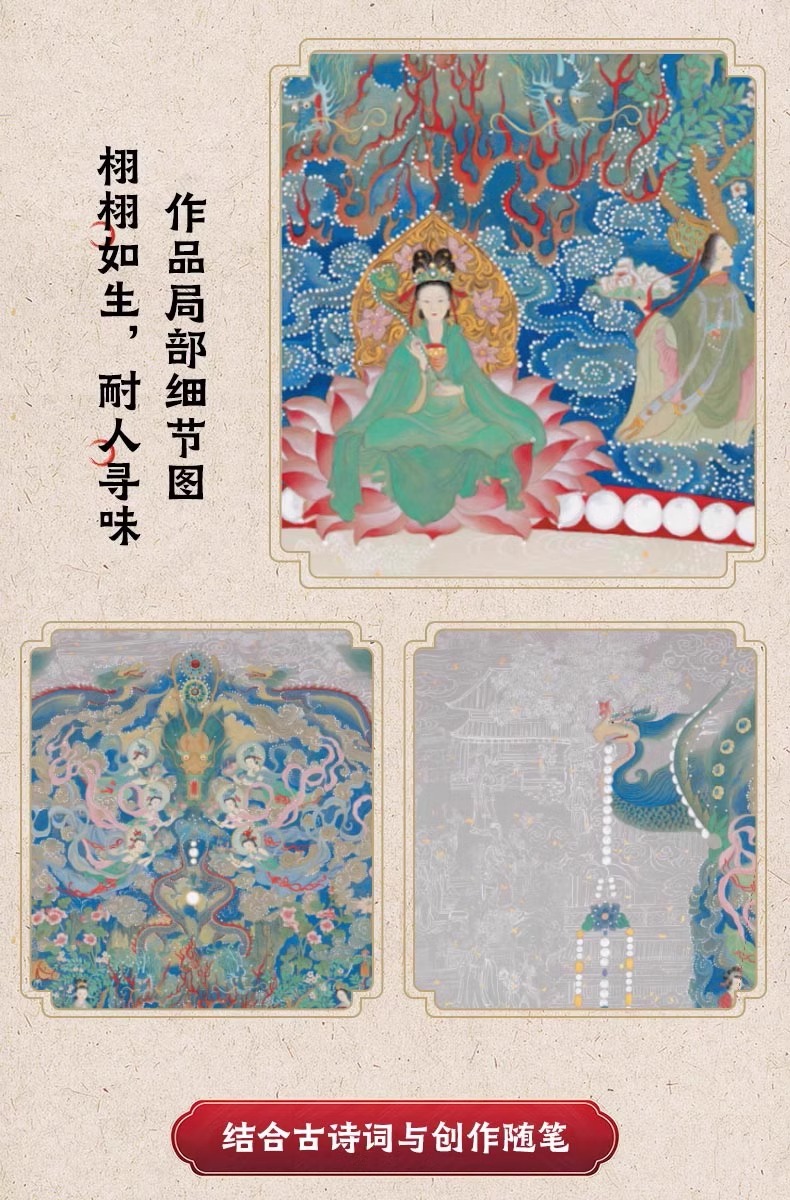 作品局部细节图
栩栩如生，耐人寻味
结合古诗词与创作随笔